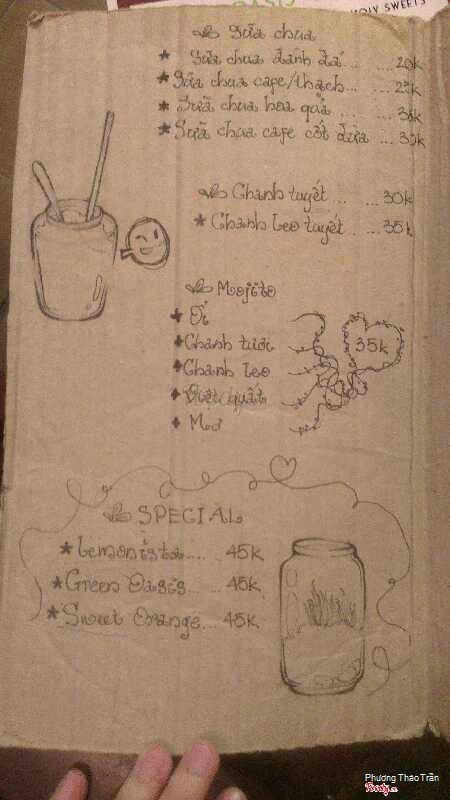 OLY SWEETS
Sữa chua
Sữa chua đánh đá ... 20k
Sữa chua cafe/thạch... 25k
Sữa chua hoa quả ... 35k
Sữa chua cafe cốt dừa ... 35k
Chanh tuyết ... ... 30k
Chanh leo tuyết ... ... 35k
Mojito
Ổi
Chanh tươi
Chanh leo
Việt quất
Mơ
35k
SPECIAL
Lemonista..... 45k
Green Oasis... ... 45k
Sweet Orange... 45k
Phương Thảo Trần